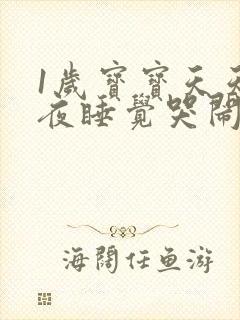 1歲寶寶天天
夜睡覺哭鬧
海闊任魚游